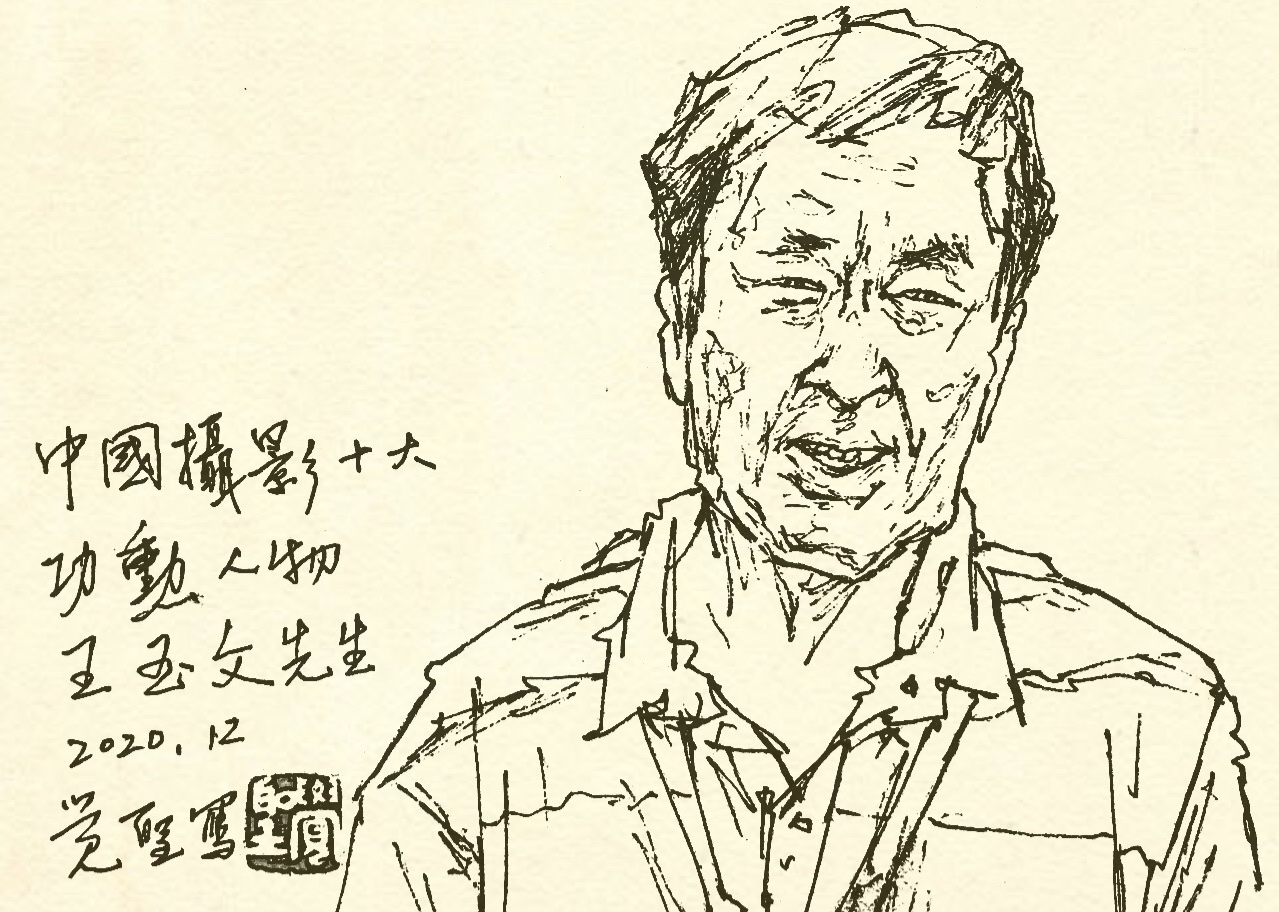 中國攝影十大
功勳人物
王玉文先生
2020.12
觉聖寫